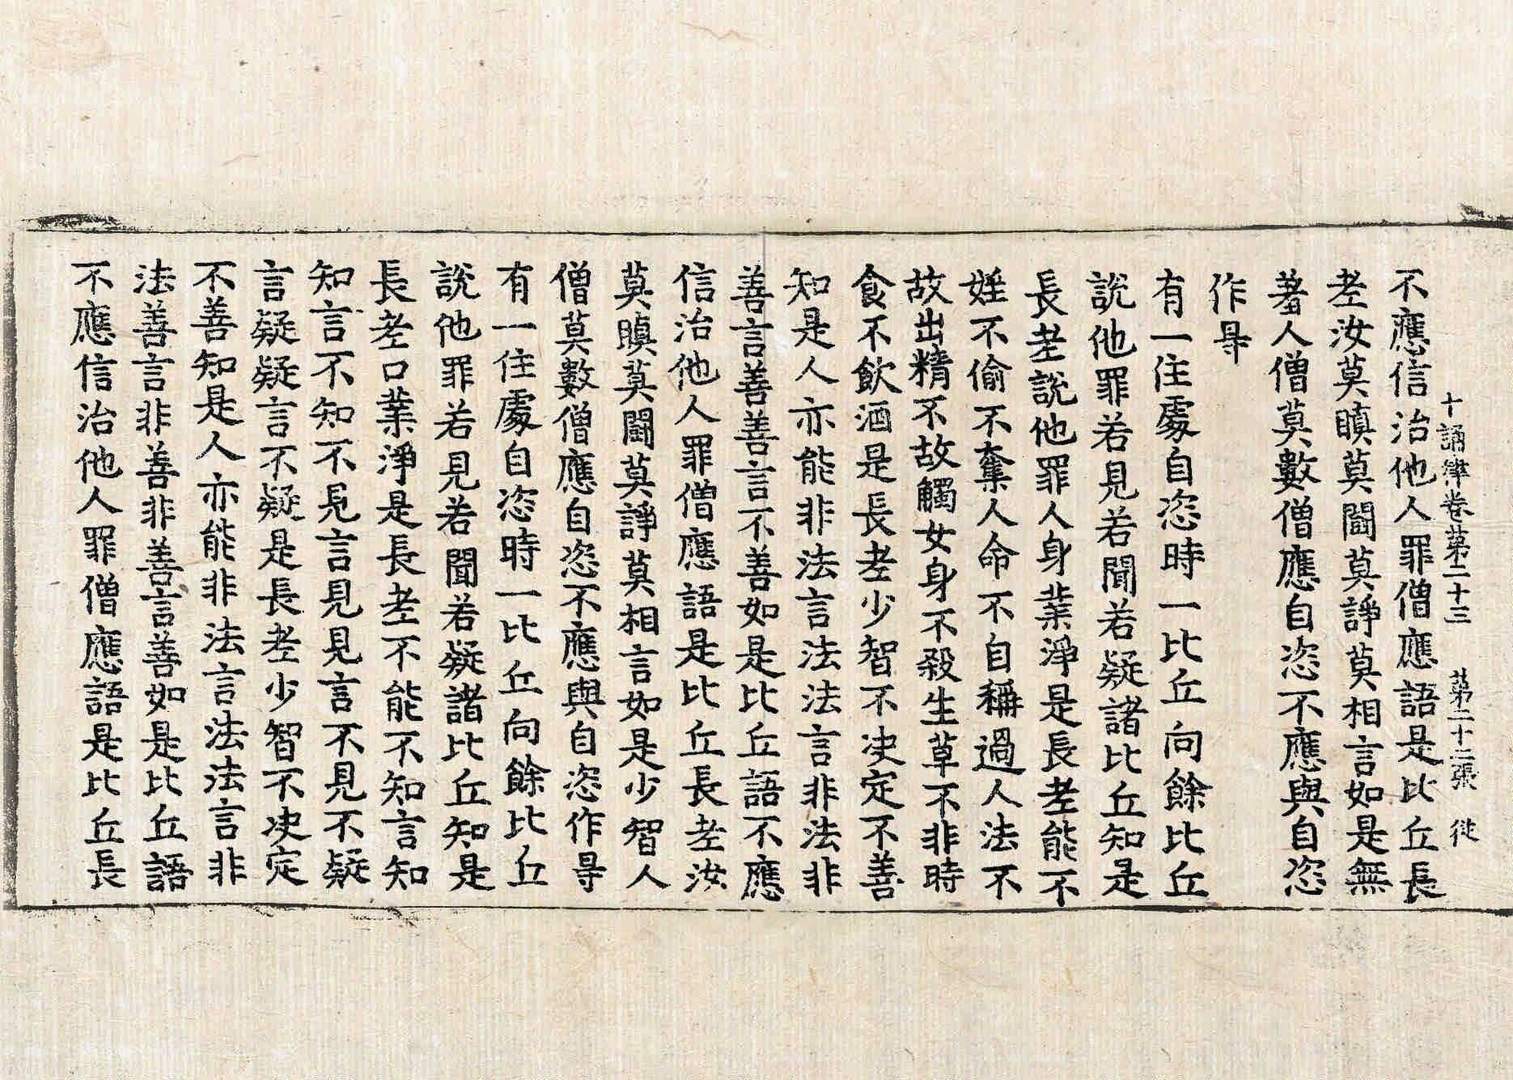 十誦律卷苐二十三 苐二十二張 㳂
不應信治他人罪僧應語是比丘長
老汝莫瞋莫鬪莫諍莫相言如是無
羞人僧莫數僧應自恣不應與自恣
作㝵
有一住處自恣時一比丘向餘比丘
說他罪若見若聞若疑諸比丘知是
長老說他罪人身業淨是長老能不
婬不偷不奪人命不自稱過人法不
故出精不故觸女身不殺生草不非時
食不飲酒是長老少智不决定不善
知是人亦能非法言法法言非法非
善言善善言不善如是比丘語不應
信治他人罪僧應語是比丘長老汝
莫瞋莫鬪莫諍莫相言如是少智人
僧莫數僧應自恣不應與自恣作㝵
有一住處自恣時一比丘向餘比丘
說他罪若見若聞若疑諸比丘知是
長老口業淨是長老不能不知言知
知言不知不見言見見言不見不疑
言疑疑言不疑是長老少智不决定
不善知是人亦能非法言法法言非
法善言非善非善言善如是比丘語
不應信治他人罪僧應語是比丘長